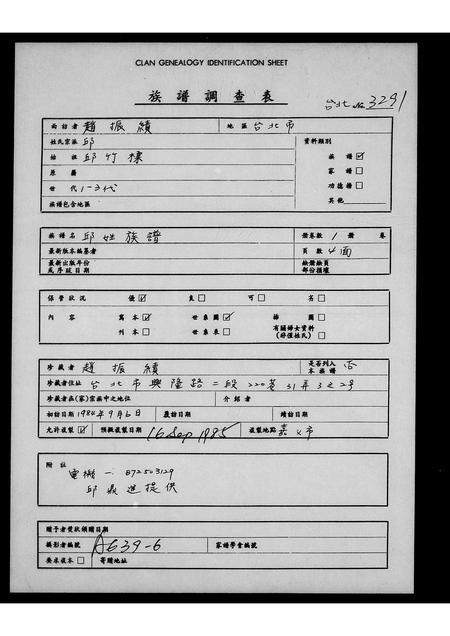 CLAN GENEALOGY IDENTIFICATION SHEET
族譜調查表
台北 No. 3291
面訪者 趙振績 地區 台北市
姓氏宗派 邱 資料類別
始祖 邱竹 族譜 ☑
原籍 家譜 ☐
世代 1-3代 功德榜 ☐
族譜包含地區 其他
族譜名 邱姓族譜 冊卷數 1 冊 卷
最新版本編纂者 頁數 4面
最新出版年份
或序跋日期
保管狀況 優 ☑ 良 ☐ 可 ☐ 劣 ☐
內容 寫本 ☑ 世系圖 ☑ 插圖 ☐
刊本 ☐ 世系表 ☐ 有關婦女資料 ☐
珍藏者 趙振績 是否列入本族譜 否
珍藏者住址 台北市興隆路二段220巷31弄3之2号
珍藏者在(家)宗族中之地位 介紹者
初訪日期 1984年9月6日 覆訪日期 續訪日期
允許複製 ☑ 預擬複製日期 16 Sep 1985 複製地點 嘉义市
附註
872503129
邱 進提供
贈予者獎狀頒贈日期
攝影者編號 A639-6 家譜學會編號
要求複本 ☐ 寄贈地址